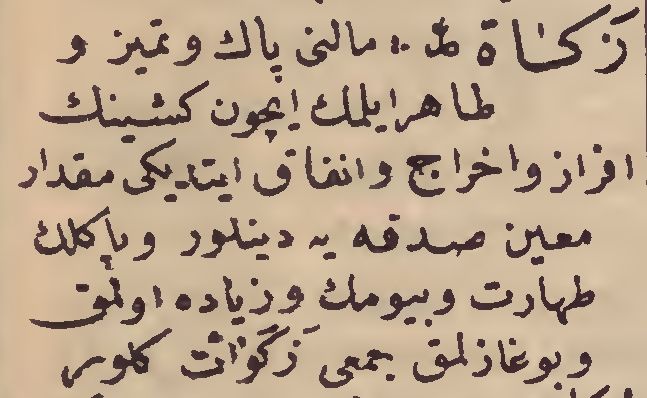 زكاة ط : مالنى پاك و تميز و
طاهر ايلمك ايچون كشينك
افراز و اخراج و انفاق ايتديكى مقدار
معين صدقه يه دينلور و پاكلك
طهارت و بيومك و زياده اولمق
و بوغازلمق جمعى زَكَوَات كلور